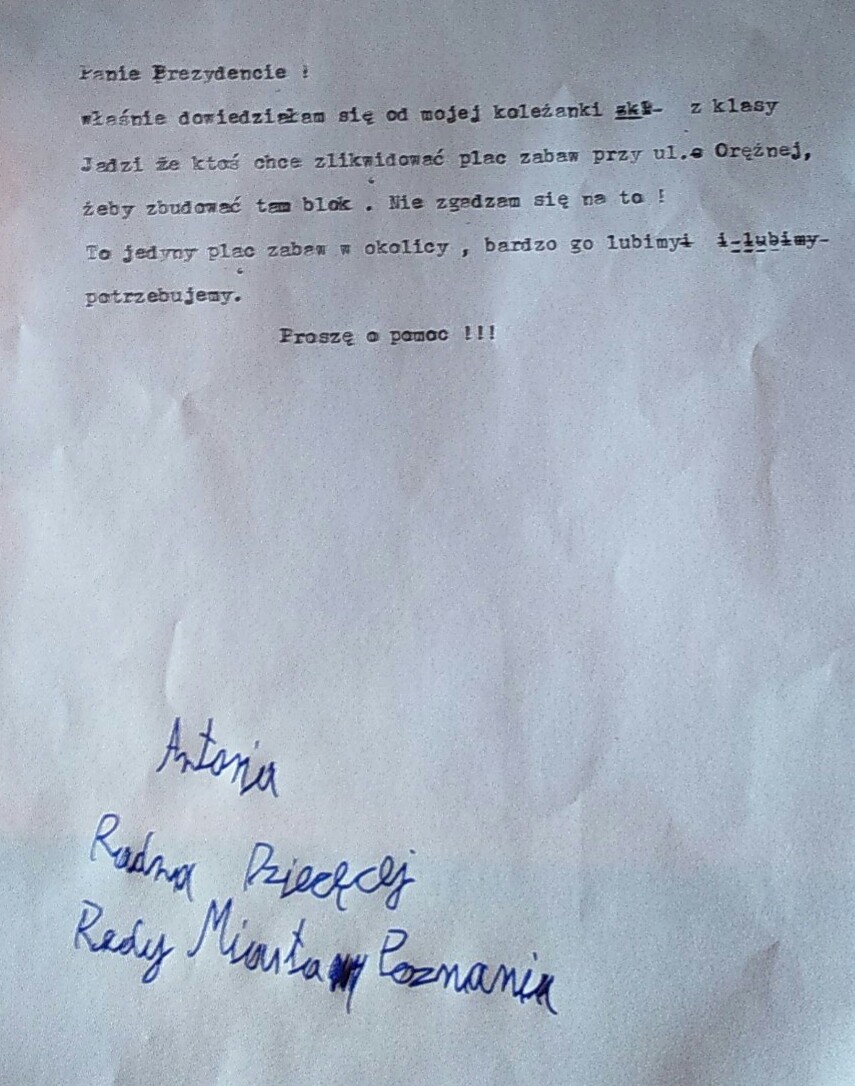 Panie Prezydencie !
właśnie dowiedziałam się od mojej koleżanki zkł- z klasy
Jadzi że ktoś chce zlikwidować plac zabaw przy ul.s Orężnej,
żeby zbudować tam blok . Nie zgadzam się na to !
To jedyny plac zabaw w okolicy , bardzo go lubimyi i-lubimy-
potrzebujemy.
Proszę o pomoc !!!
Antonia
Radna Dziecęcej
Rady Miasta Poznania